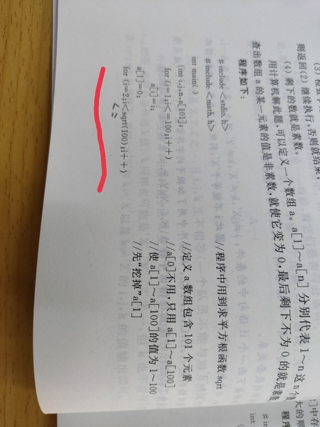 则返回(2)继续执行,否则就结束。
(4) 剩下的数就是素数。
用计算机解此题,可以定义一个数组 a。a[1]～a[n] 分别代表 1～n 这n个
查出数组 a 的某一元素的值是非素数,就使它变为 0,最后剩下不为 0 的就是素数
程序如下:
# include <stdio.h>
# include <math.h> //程序中用到求平方根函数 sqrt
int main()
{int i,j,n,a[101]; //定义 a 数组包含 101 个元素
for (i=1;i<=100;i++) //a[0]不用,只用 a[1]～a[100]
a[i]=i; //使 a[1]～a[100]的值为 1～100
a[1]=0; //先"挖掉"a[1]
for (i=2;i<sqrt(100);i++)
<=